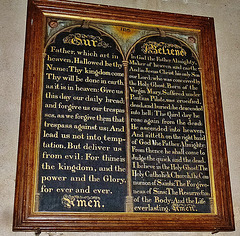 Our
Father, which art in
heaven, Hallowed be thy
Name; Thy kingdom come
Thy will be done in earth
as it is in heaven: Give us
this day our daily bread;
and forgive us our trespas-
ses, as we forgive them that
trespass against us; And
lead us not into temp-
tation. But deliver us
from evil: For thine is
the kingdom, and the
power and the Glory,
for ever and ever.
Amen.
I Believe
in God the Father Almighty,
Maker of heaven and earth:
And in Jesus Christ his only Son
our Lord; who was conceived by
the Holy Ghost, Born of the
Virgin Mary, Suffered under
Pontius Pilate, was crucified,
dead, and buried, he descended
into hell; The third day he
rose again from the dead:
He ascended into heaven,
And sitteth on the right hand
of God the Father Almighty;
From thence he shall come to
Judge the quick and the dead.
I believe in the Holy Ghost; The
Holy Catholick Church; the Com-
munion of Saints; The Forgive-
ness of Sins; The Resurrection
of the Body: And the Life
everlasting. Amen.